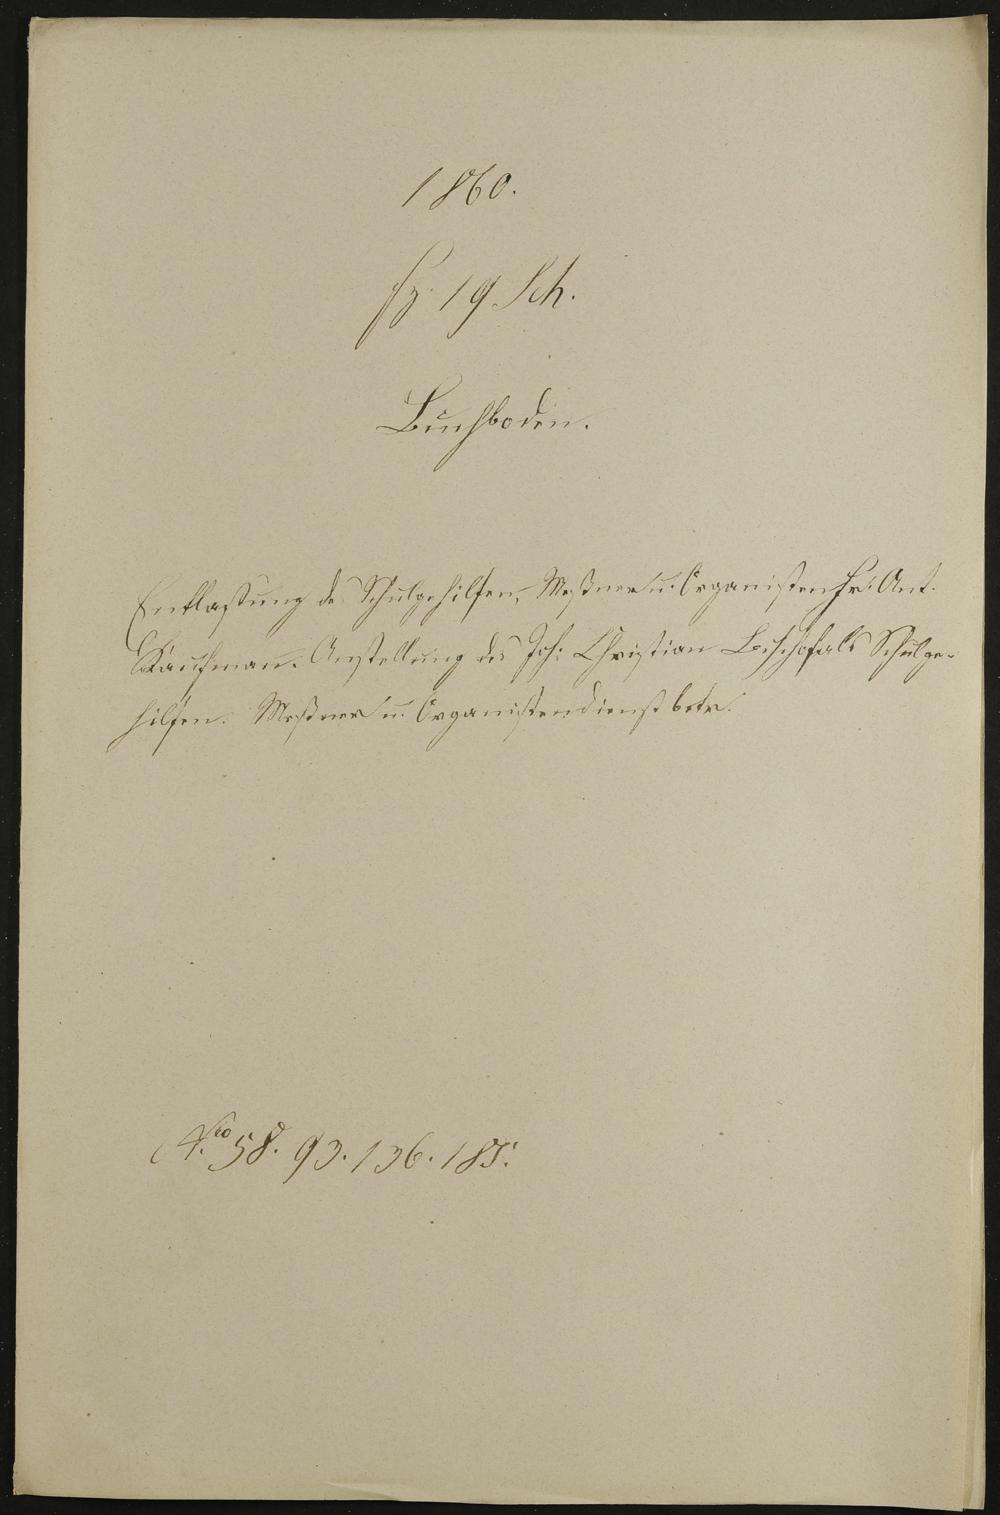 1860.
Fz. 19 Sch.
Buchboden.
Entlassung des Schulgehilfen, Meßner u. Organisten Fr. Ant.
Kaufmann. Anstellung des Joh: Christian Bischof als Schulge-
hilfen. Meßner u. Organistendienst betr.
No 58. 93. 136. 185.